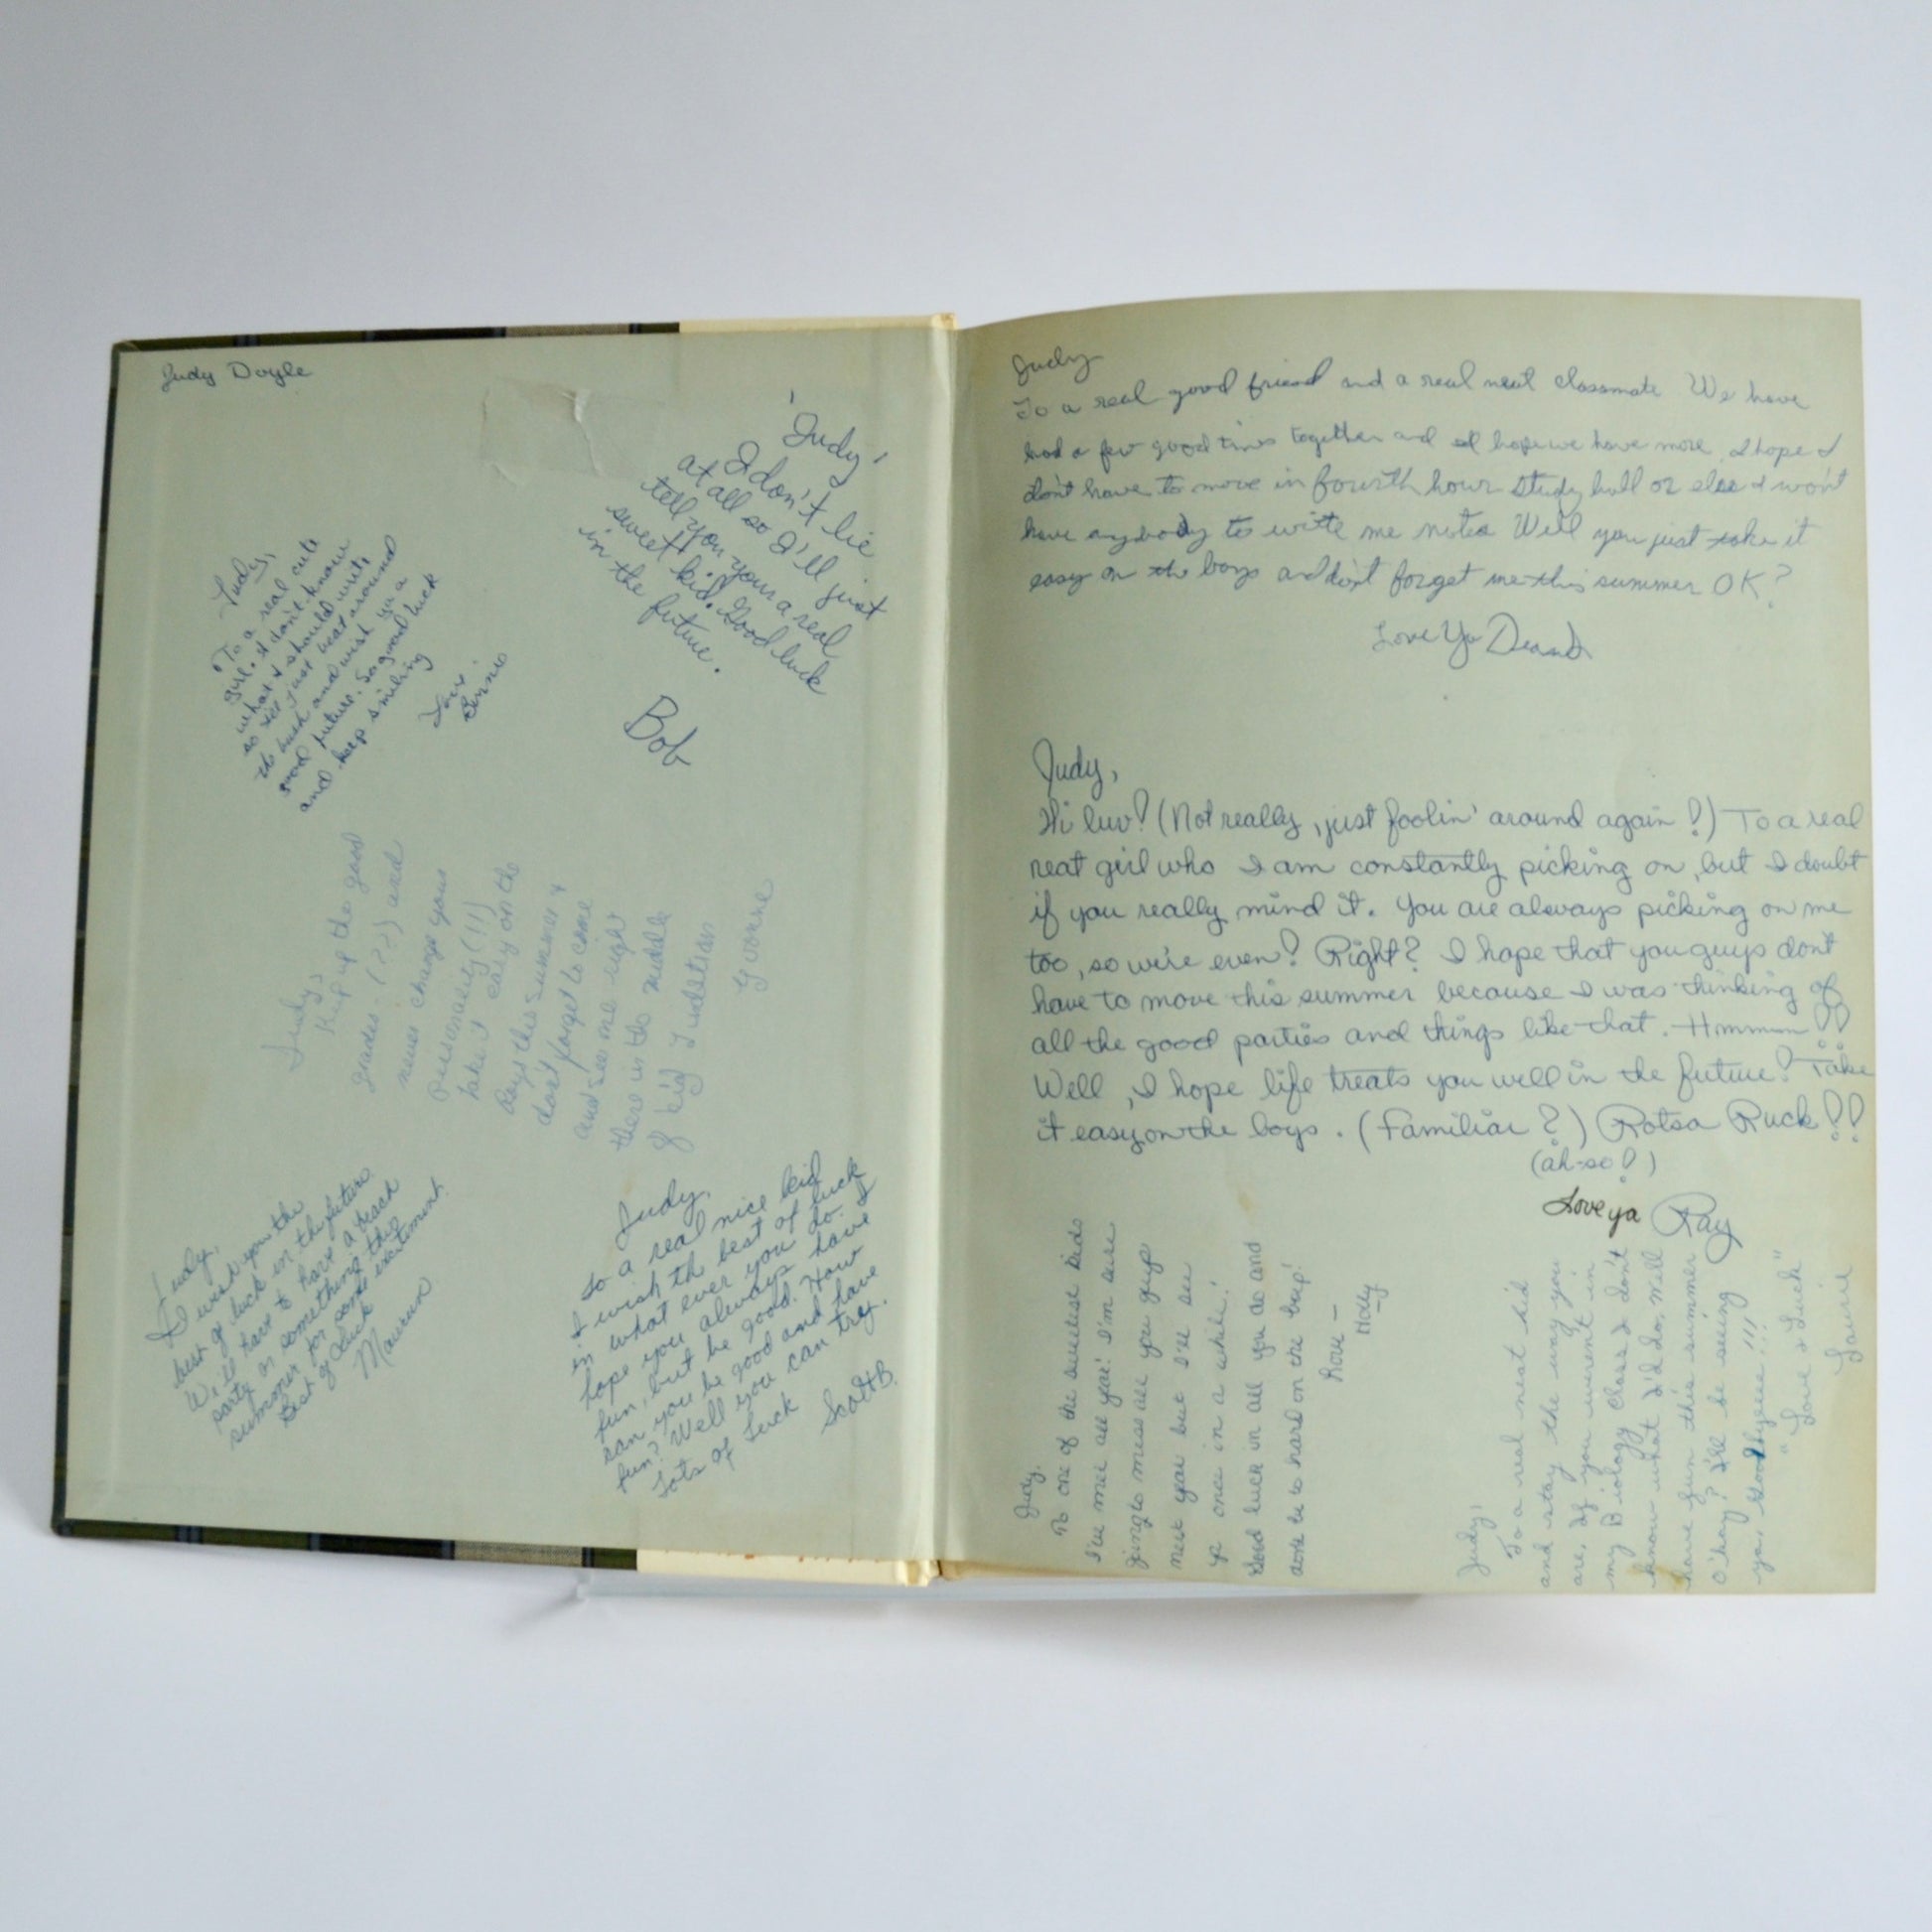 Judy Doyle
Judy,
To a real cute
girl. I don't know
what I should write
so I'll just beat around
the bush and wish ya a
good future. So good luck
and keep smiling
Love,
'Judy'
I don't lie
at all so I'll just
tell you your a real
sweet kid. Good luck
in the future.
Bob
Judy,
Keep up the good
grades - (??) and
never change your
personality (!!)
take it easy on the
boys this summer &
don't forget to come
and see me right
there in the middle
of big
Yvonne
Judy,
I wish you the
best of luck in the future.
We'll have to have a beach
party or something this
summer for some excitement.
Best of Luck
Maureen
Judy,
To a real nice kid
I wish the best of luck
in what ever you do. I
hope you always have
fun, but be good. How
can you be good and have
fun? Well you can try.
Lots of Luck
Scott B.
Judy
To a real good friend and a real neat classmate We have
had a few good times together and I hope we have more. I hope I
don't have to move in fourth hour study hall or else I won't
have anybody to write me notes Well you just take it
easy on the boys and don't forget me this summer OK?
Love Ya
Judy,
Hi luv! (Not really, just foolin' around again!) To a real
neat girl who I am constantly picking on, but I doubt
if you really mind it. You are always picking on me
too, so we're even! Right? I hope that you guys dont
have to move this summer because I was thinking of
all the good parties and things like that. Hmmmm!!
Well, I hope life treats you well in the future! Take
it easy on the boys. (Familiar?) Rotsa Ruck!!
(ah-so!)
Love ya Ray
Judy,
To one of the sweetest kids
I've met all year! I'm sure
going to miss all you guys
next year but I'll see
ya once in a while!
Good luck in all you do and
dont be to hard on the boys!
Love -
Holly
Judy!
To a real neat kid
and stay the way you
are. If you weren't in
my Biology Class I don't
know what I'd do. Well
have fun this summer
O'kay? I'll be seeing
ya, Goodbyeee!!!
"Love & Luck"
Laurie